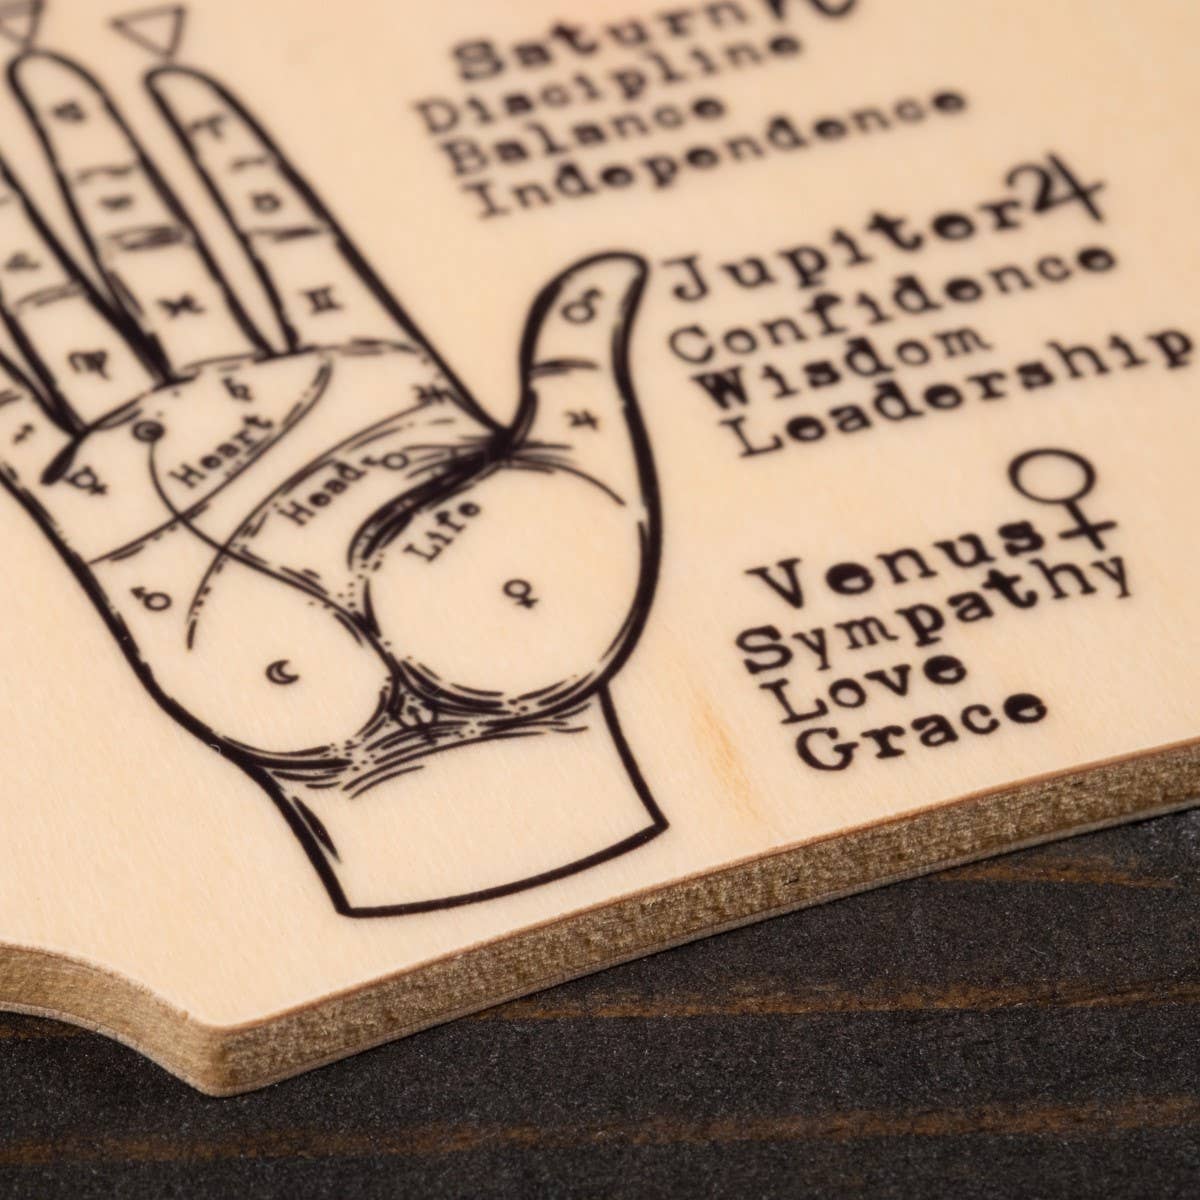 Saturn ♄
Discipline
Balance
Independence
Jupiter ♃
Confidence
Wisdom
Leadership
Venus ♀
Sympathy
Love
Grace
Heart
Head
Life